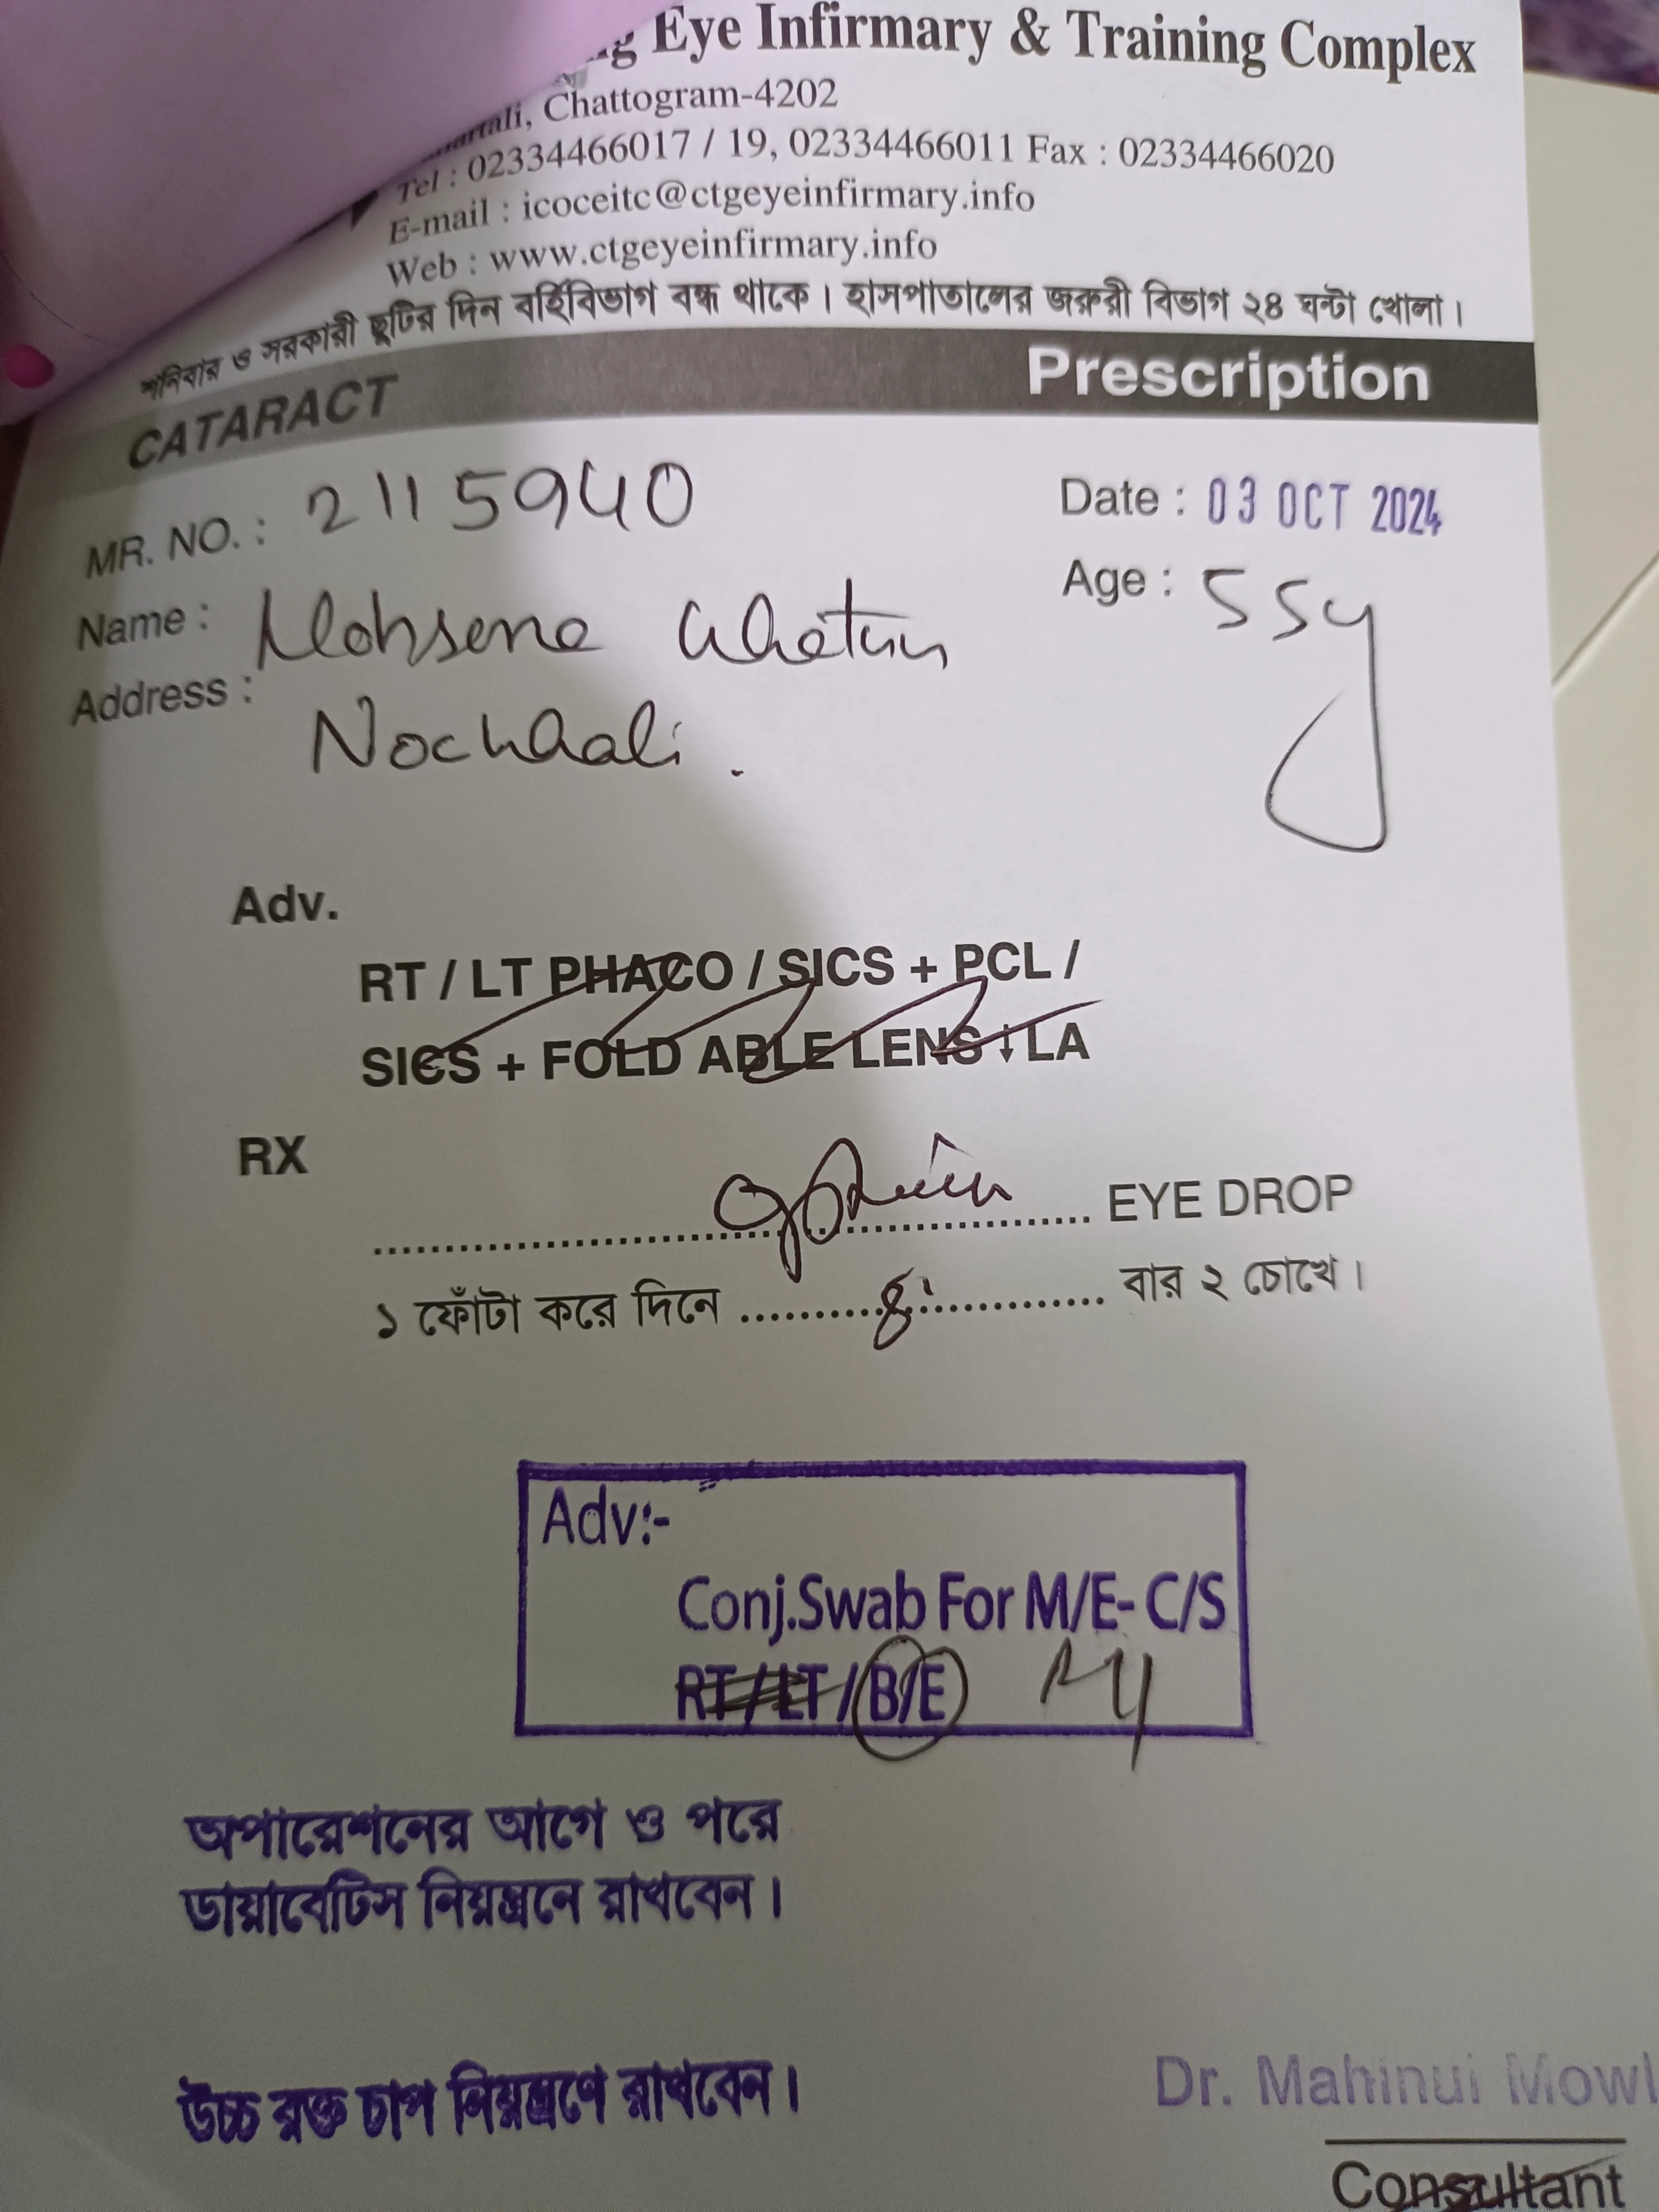 Eye Infirmary & Training Complex
Chattogram-4202
Tel : 02334466017 / 19, 02334466011 Fax : 02334466020
E-mail : icoceitc@ctgeyeinfirmary.info
Web : www.ctgeyeinfirmary.info
শনিবার ও সরকারী ছুটির দিন বর্হিবিভাগ বন্ধ থাকে। হাসপাতালের জরুরী বিভাগ ২৪ ঘন্টা খোলা।
CATARACT Prescription
MR. NO. : 2115940 Date : 03 OCT 2024
Name : Mohsena Khatun Age : 55y
Address : Noakhali.
Adv.
RT / LT PHACO / SICS + PCL /
SICS + FOLD ABLE LENS ↓ LA
RX
EYE DROP
১ ফোঁটা করে দিনে ৪ বার ২ চোখে।
Adv:-
Conj.Swab For M/E- C/S
RT/LT/B/E
অপারেশনের আগে ও পরে
ডায়াবেটিস নিয়ন্ত্রনে রাখবেন।
উচ্চ রক্ত চাপ নিয়ন্ত্রণে রাখবেন।
Dr. Mahinui Mowl
Consultant